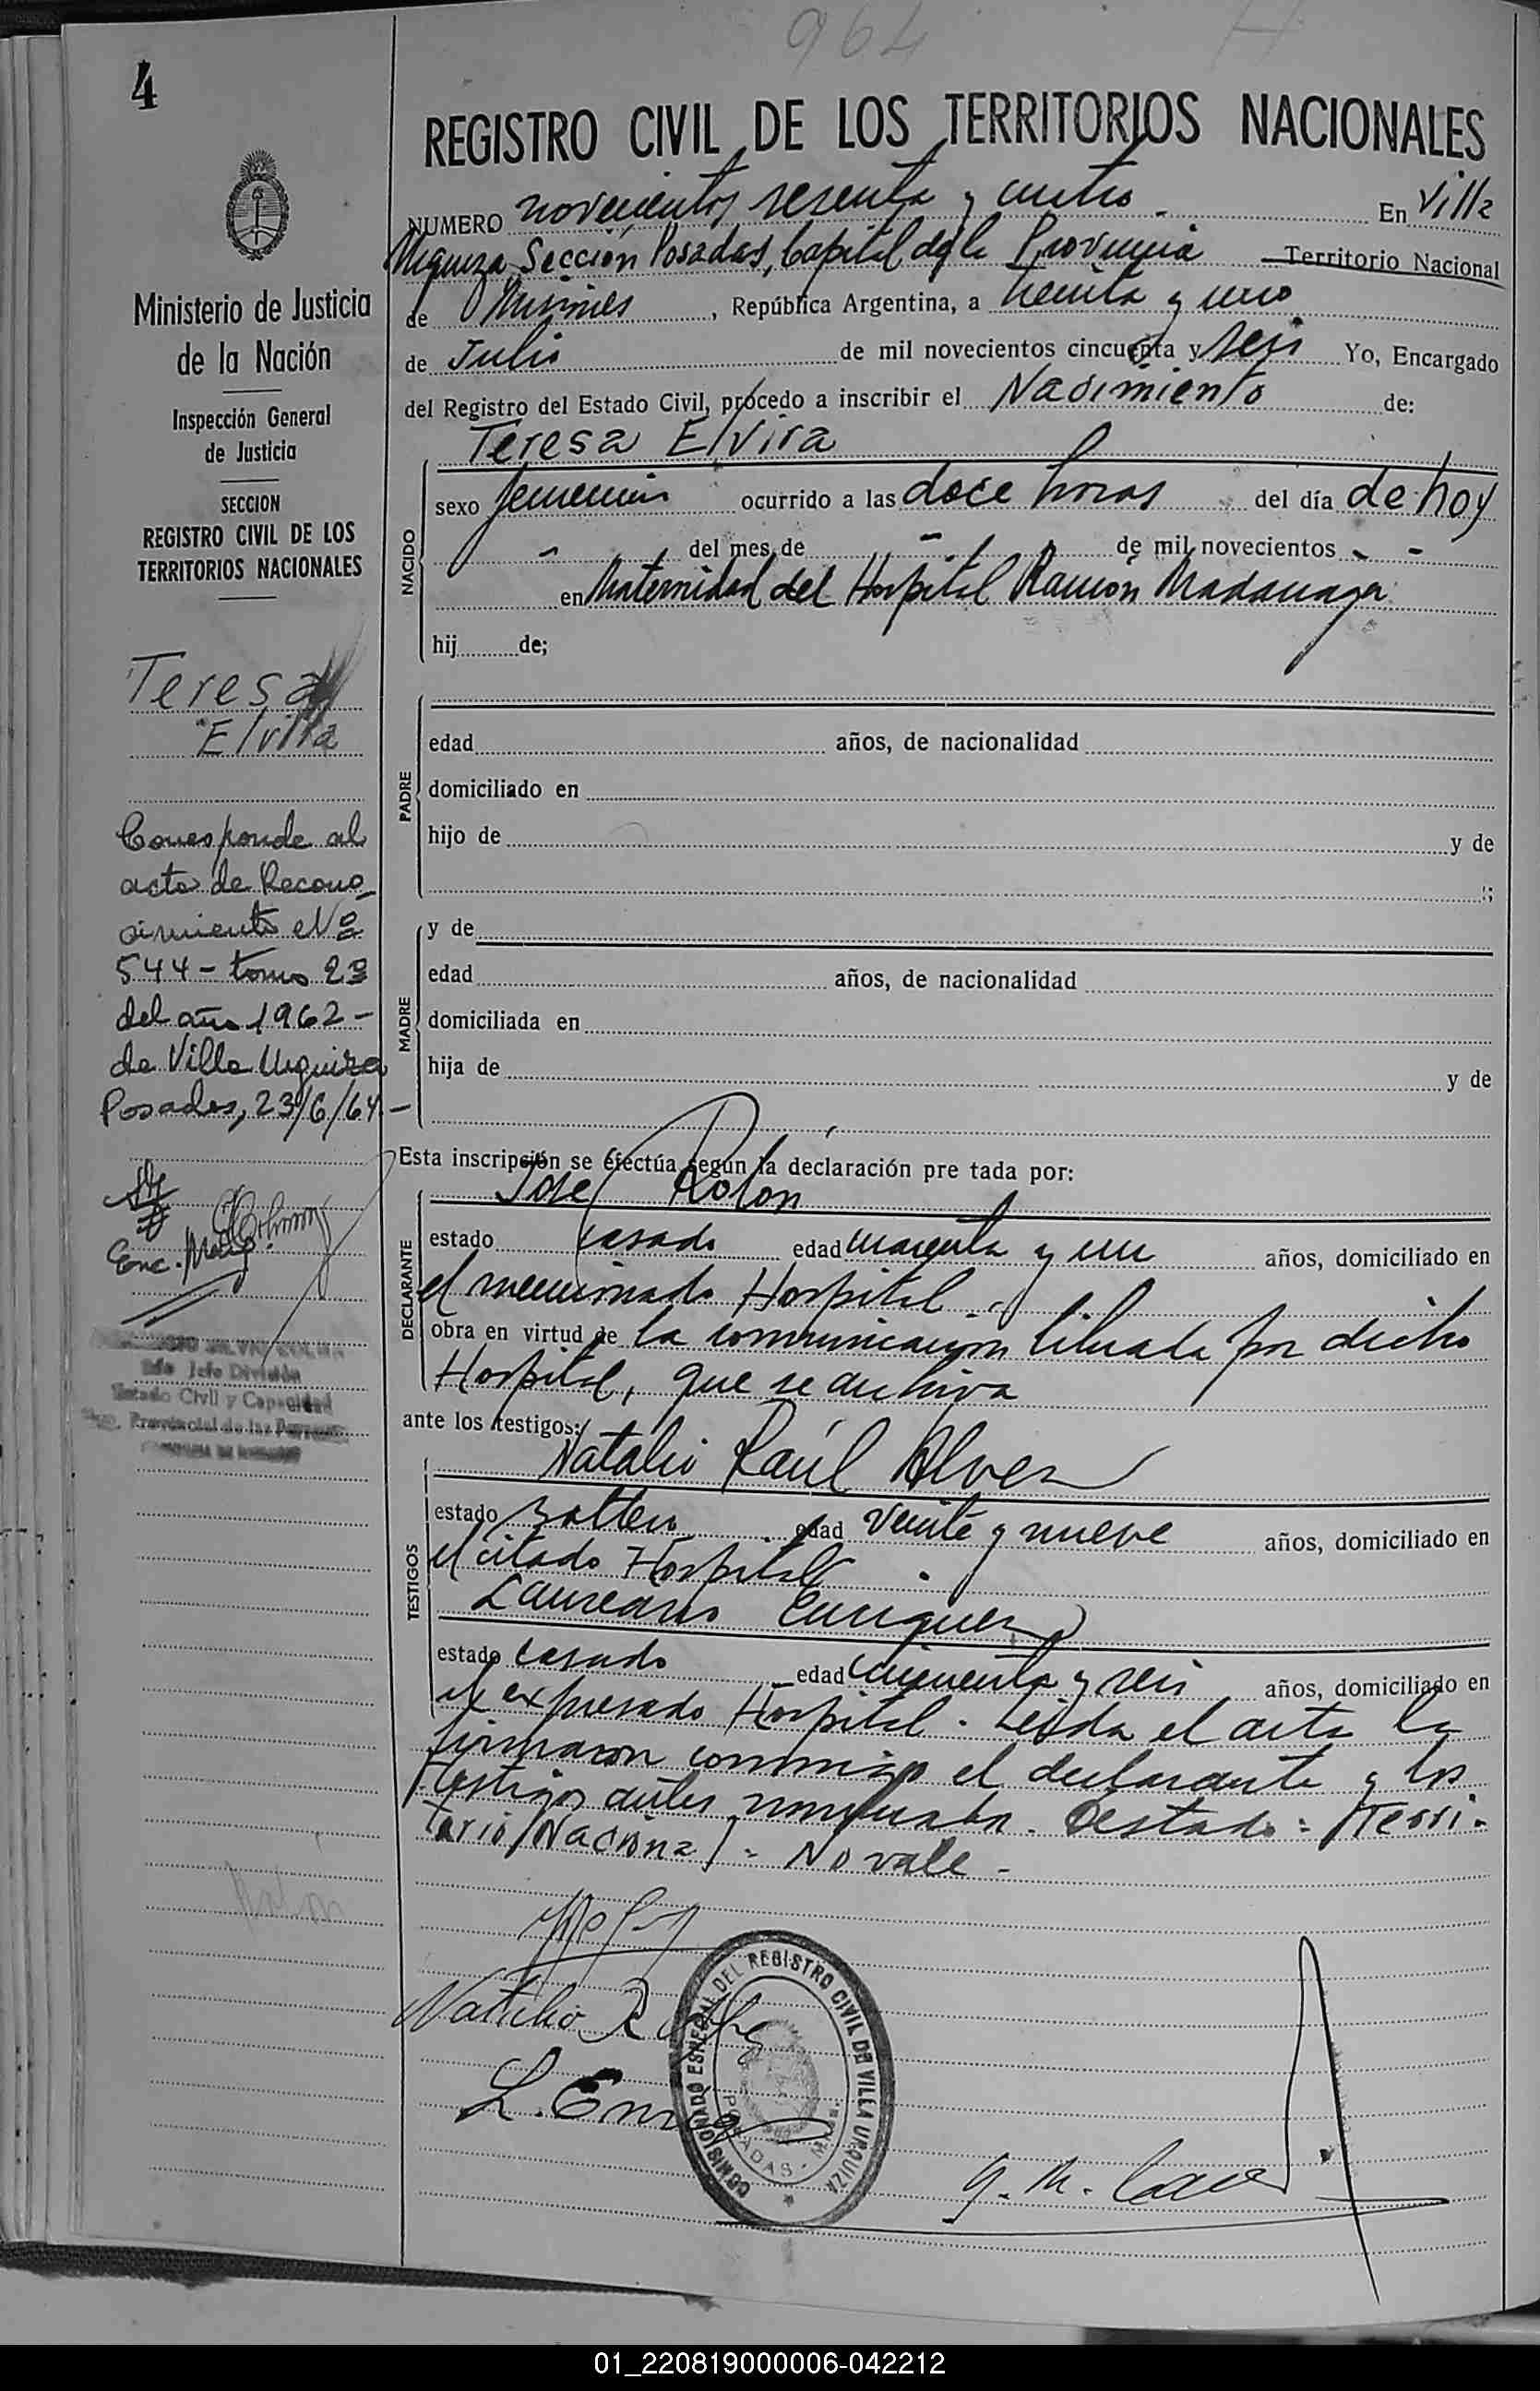 964
4
REGISTRO CIVIL DE LOS TERRITORIOS NACIONALES
NUMERO novecientos sesenta y cuatro. En Villa
Urquiza, Sección Posadas, Capital de la Provincia Territorio Nacional
de Misiones, República Argentina, a treinta y uno
de Julio de mil novecientos cincuenta y seis Yo, Encargado
del Registro del Estado Civil, procedo a inscribir el Nacimiento de:
Teresa Elvira
NACIDO
sexo femenino ocurrido a las doce horas del día de hoy
- del mes de - de mil novecientos - -
en Maternidad del Hospital Ramón Madariaga
hij de;
PADRE
edad años, de nacionalidad
domiciliado en
hijo de y de
;
MADRE
y de
edad años, de nacionalidad
domiciliada en
hija de y de
Esta inscripción se efectúa según la declaración pre tada por:
José Rolón
DECLARANTE
estado casado edad cuarenta y un años, domiciliado en
el mencionado Hospital
obra en virtud de la comunicación librada por dicho
Hospital, que se archiva
ante los testigos:
Natalio Raúl Alvez
TESTIGOS
estado soltero edad veinte y nueve años, domiciliado en
el citado Hospital
Laureano Enriquez
estado casado edad cincuenta y seis años, domiciliado en
el expresado Hospital. Leída el acta la
firmaron conmigo el declarante y los
testigos antes nombrados. Testado: Terri-
torio Nacional: No vale-
Natalio R
L. Enriq
COMISIONADO ESPECIAL DEL REGISTRO CIVIL DE VILLA URQUIZA
POSADAS - Mnes.
Ministerio de Justicia
de la Nación
Inspección General
de Justicia
SECCION
REGISTRO CIVIL DE LOS
TERRITORIOS NACIONALES
Teresa
Elvira
Corresponde al
acta de Recono-
cimiento Nº
544 - tomo 2º
del año 1962 -
de Villa Urquiza
Posadas, 23/6/64 -
Enc.
Jefe División
Estado Civil y Capacidad
Provincial de las Personas
01_220819000006-042212